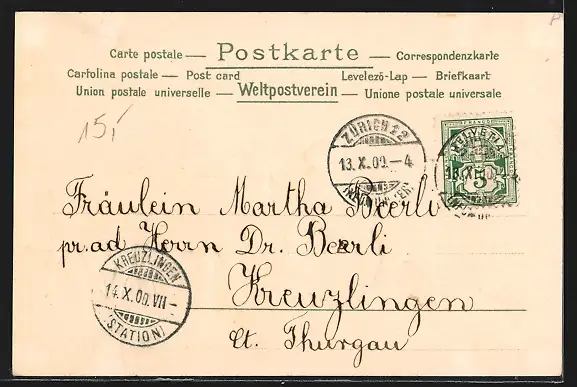 Carte postale — Postkarte — Correspondenzkarte
Cartolina postale — Post card Levelező-Lap — Briefkaart
Union postale universelle — Weltpostverein — Unione postale universale
15,-
ZÜRICH 12
13.X.00.—4
HELVETIA
5
13.X.
Fräulein Martha
pr. ad Herrn Dr. Beerli
Kreuzlingen
Ct. Thurgau
KREUZLINGEN
14.X.00.VII—
(STATION)